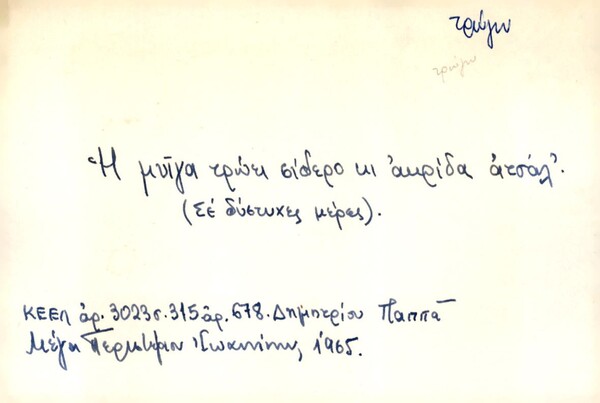 τρώγω
τρώγω
Ἡ μυῖγα τρώει σίδερο κι ἀκρίδα ἀτσάλ'.
(Σέ δύστυχες μέρες).
ΚΕΕΛ ἀρ. 3023 σ. 315 ἀρ. 678. Δημητρίου Παππᾶ
Μέγα Περιστέρι Ἰωαννίνων, 1965.